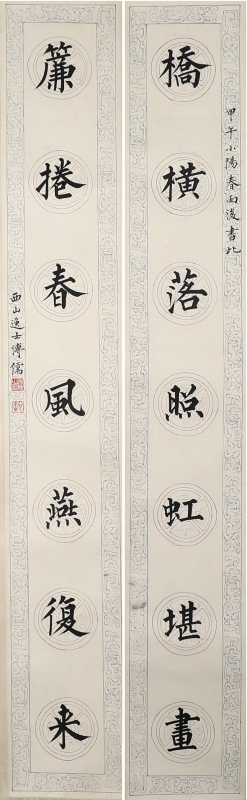 橋橫落照虹堪畫
甲午小陽春雨後書此
簾捲春風燕復来
西山逸士溥儒